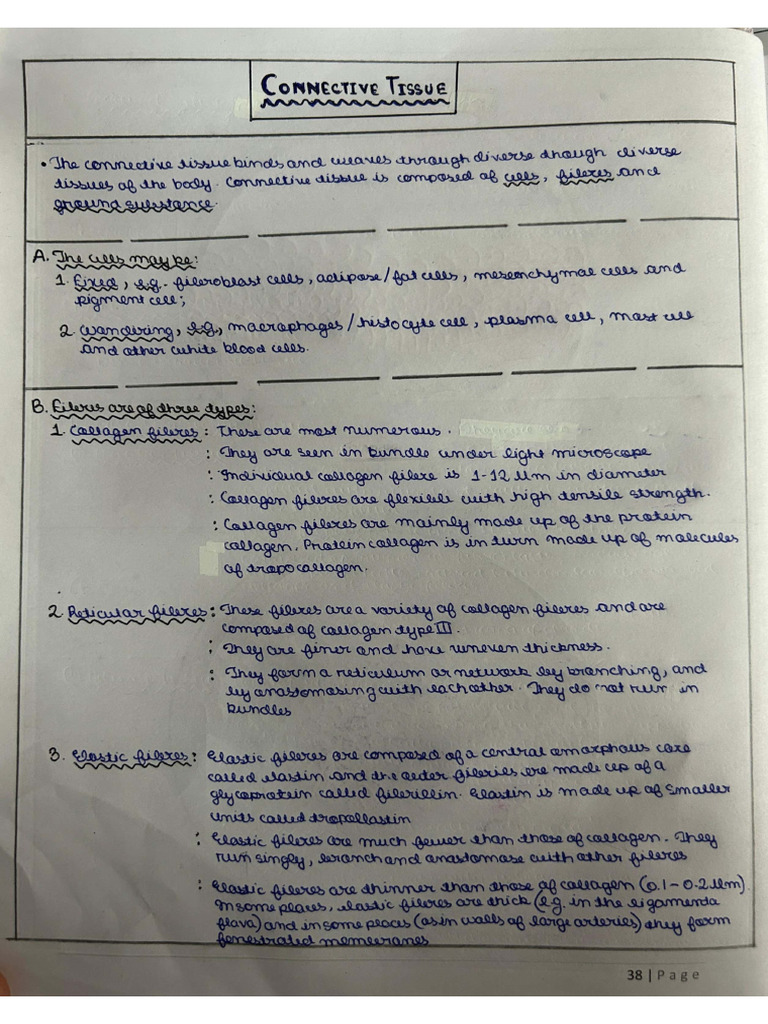 CONNECTIVE TISSUE
• The connective tissue binds and weaves through diverse though diverse
tissues of the body. Connective tissue is composed of cells, fibres and
ground substance.
A. The cells may be:
1. Fixed, e.g. fibroblast cells, adipose/fat cells, mesenchymal cells and
pigment cell;
2. Wandering, e.g., macrophages/histocyte cell, plasma cell, mast cell
and other white blood cells.
B. Fibres are of three types:
1. Collagen fibres : These are most numerous.
: They are seen in bundle under light microscope
: Individual collagen fibre is 1-12 µm in diameter
: Collagen fibres are flexible with high tensile strength.
: Collagen fibres are mainly made up of the protein
collagen. Protein collagen is in turn made up of molecules
of tropocollagen.
2. Reticular fibres : These fibres are a variety of collagen fibres and are
composed of collagen type III.
: They are finer and have uneven thickness.
: They form a reticulum or network by branching, and
by anastomosing with each other. They do not run in
bundles
3. Elastic fibres : Elastic fibres are composed of a central amorphous core
called elastin and the outer fibries are made up of a
glycoprotein called fibrillin. Elastin is made up of smaller
units called tropollastin
: Elastic fibres are much fewer than those of collagen. They
run singly, branch and anastomase with other fibres
: Elastic fibres are thinner than those of collagen (0.1-0.2 µm).
In some places, elastic fibres are thick (e.g. in the ligamenta
flava) and in some places (as in walls of large arteries) they form
fenestrated membranes
38 | Page